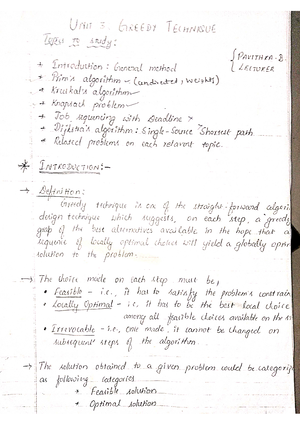 UNIT 3 GREEDY TECHNIQUE
Topics to study:
* Introduction: General method
* Prim's algorithm - (undirected, weights)
* Kruskal's algorithm
* Knapsack problem
* Job sequencing with Deadline *
* Dijkstra's algorithm: Single-Source Shortest path
* Related problems on each relevant topic.
{ PAVITHRA-B.
{ LECTURER
* INTRODUCTION:-
→ Definition:
Greedy technique is one of the straight-forward algori
design technique which suggests, on each step, a 'greedy
grap of the best alternatives available in the hope that a
sequence of locally optimal choices will yield a globally op
solution to the problem.
→ The choice made on each step must be,
• Feasible - i.e., It has to satisfy the problem's constrain
• Locally Optimal - i.e, it has to be the best local choice
among all feasible choices available on the s
• Irrevocable - i.e., once made, it cannot be changed on
subsequent steps of the algorithm.
→ The solution obtained to a given problem could be categoriz
as following categories
* Feasible solution
* Optimal solution